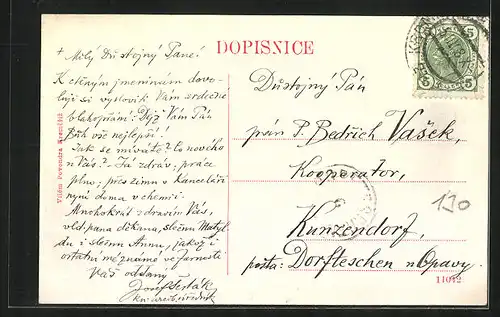 DOPISNICE
+ Milý Důstojný Pane!
K ctěným jmeninám dovo-
luji si vysloviti Vám srdečné
blahopřání: Dejž Vám Pán
Bůh vše nejlepší!
Jak se míváte? Co nového
u Vás? - Já zdráv, práce
plno; přes zimu v kanceláři
nyní doma v chemii.
Mnohokrát zdravím Vás,
vld. pana děkana, slečnu Matyl-
du i slečnu Annu, jakož i
ostatní mé známé ve farnosti
Váš oddaný
Josef
Důstojný Pán
pán P. Bedřich Vašek,
Kooperator,
Kunzendorf,
pošta: Dorfteschen u Opavy.
Vilém Povondra Kroměříž
5 5
130
11012